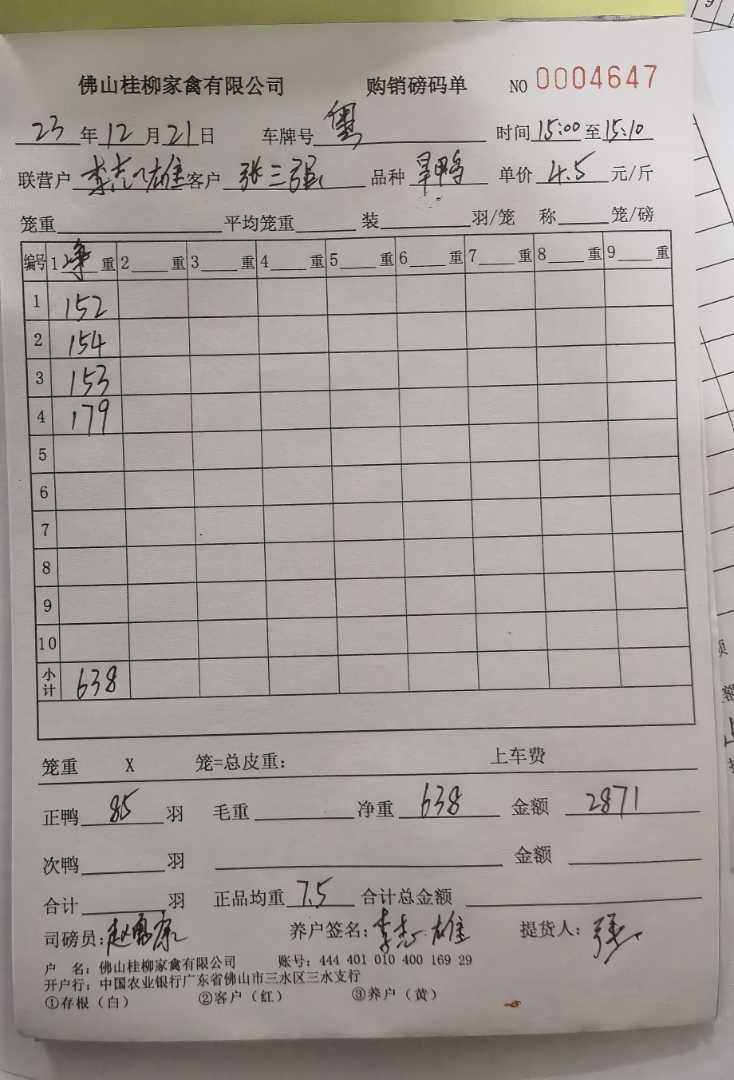 佛山桂柳家禽有限公司 购销磅码单 NO 0004647
23年12月21日 车牌号 时间15:00至15:10
联营户李志雄客户张三强 品种旱鸭 单价4.5元/斤
笼重 平均笼重 装 羽/笼 称 笼/磅
编号 1净重 2 重 3 重 4 重 5 重 6 重 7 重 8 重 9 重
1 152
2 154
3 153
4 179
5
6
7
8
9
10
小计 638
笼重 X 笼=总皮重: 上车费
正鸭85羽 毛重 净重638 金额 2871
次鸭 羽 金额
合计 羽 正品均重7.5 合计总金额
司磅员: 养户签名:李志雄 提货人:张
户 名: 佛山桂柳家禽有限公司 账号: 444 401 010 400 169 29
开户行: 中国农业银行广东省佛山市三水区三水支行
①存根(白) ②客户(红) ③养户(黄)